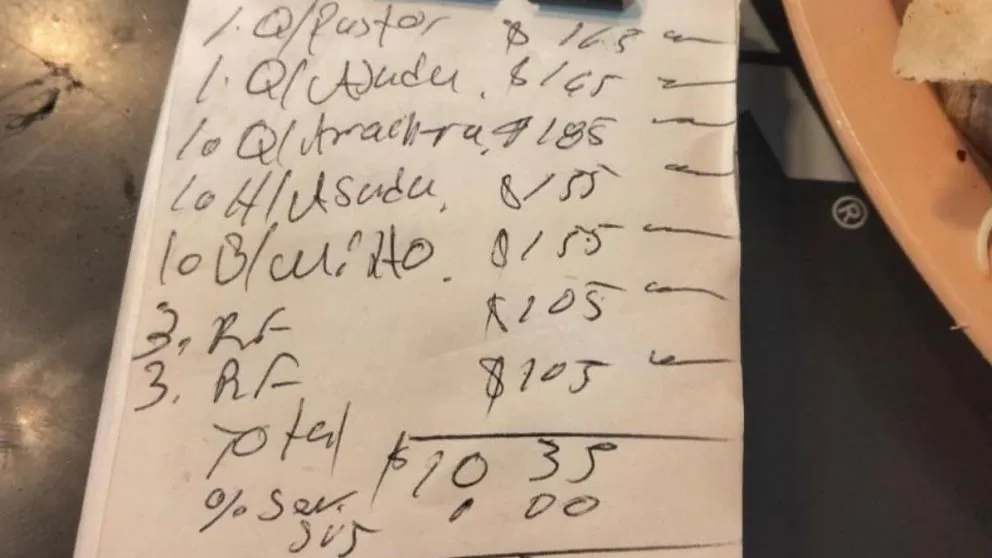 1. Q/Pastor $165
1. Q/Asada. $165
1o Q/Arrachera. $185
1o H/Asada. $155
1o B/ $155
3. RF $105
3. RF $105
Total $1035
% Ser. . 00
®